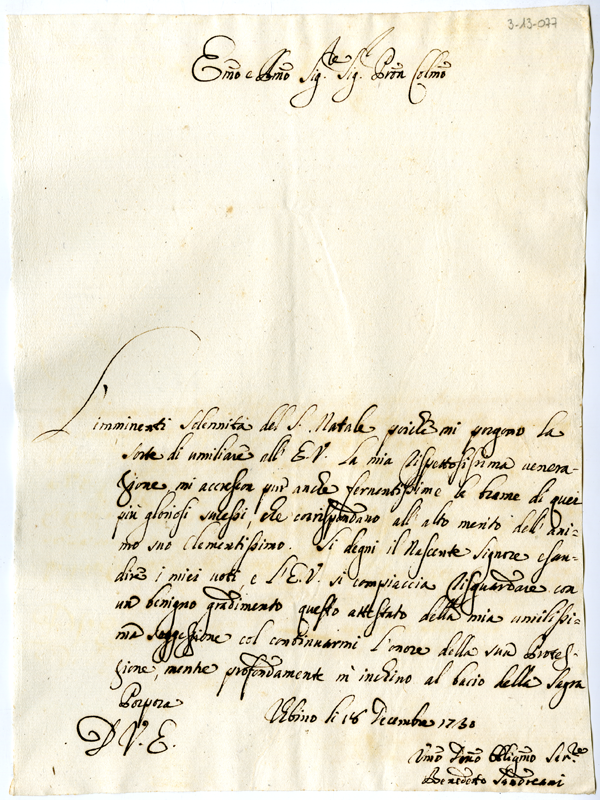 3-13-077
Emo e Rmo Sig.re Sig. Pron Colmo
L'imminenti Solennità del S. Natale poiche mi porgono la
sorte di umiliare all' E.V. la mia rispettosissima venera-
zione, mi accresson pur anche ferventissime le brame di quei
più gloriosi sucessi, che corrispondano all' alto merito dell' ani-
mo suo Clementissimo. Si degni il Nascente Signore esau-
dire i miei voti, e l'E.V. si compiaccia risguardare con
un benigno gradimento questo attestato della mia umilissi-
ma soggezzione col continuarmi l'onore della sua Protez-
zione, mentre profondamente m' inchino al bacio della Sagra
Porpora
Urbino li 18 Decembre 1730
D. V. E.
Umo Dmo Obligmo Ser.re
Benedetto